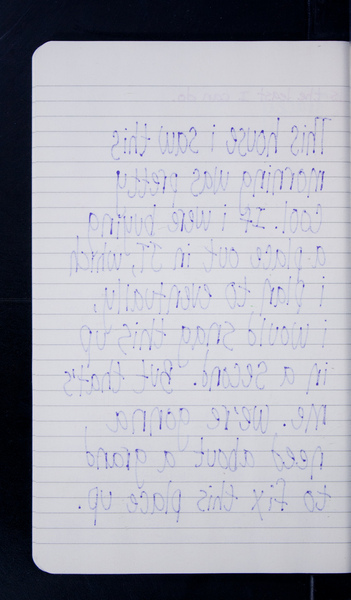 This house i saw this
morning was pretty
cool. If i were buying
a place out in JT, which
i plan to eventually,
i would snag this up
in a second. But that's
me. We're gonna
need about a grand
to fix this place up.